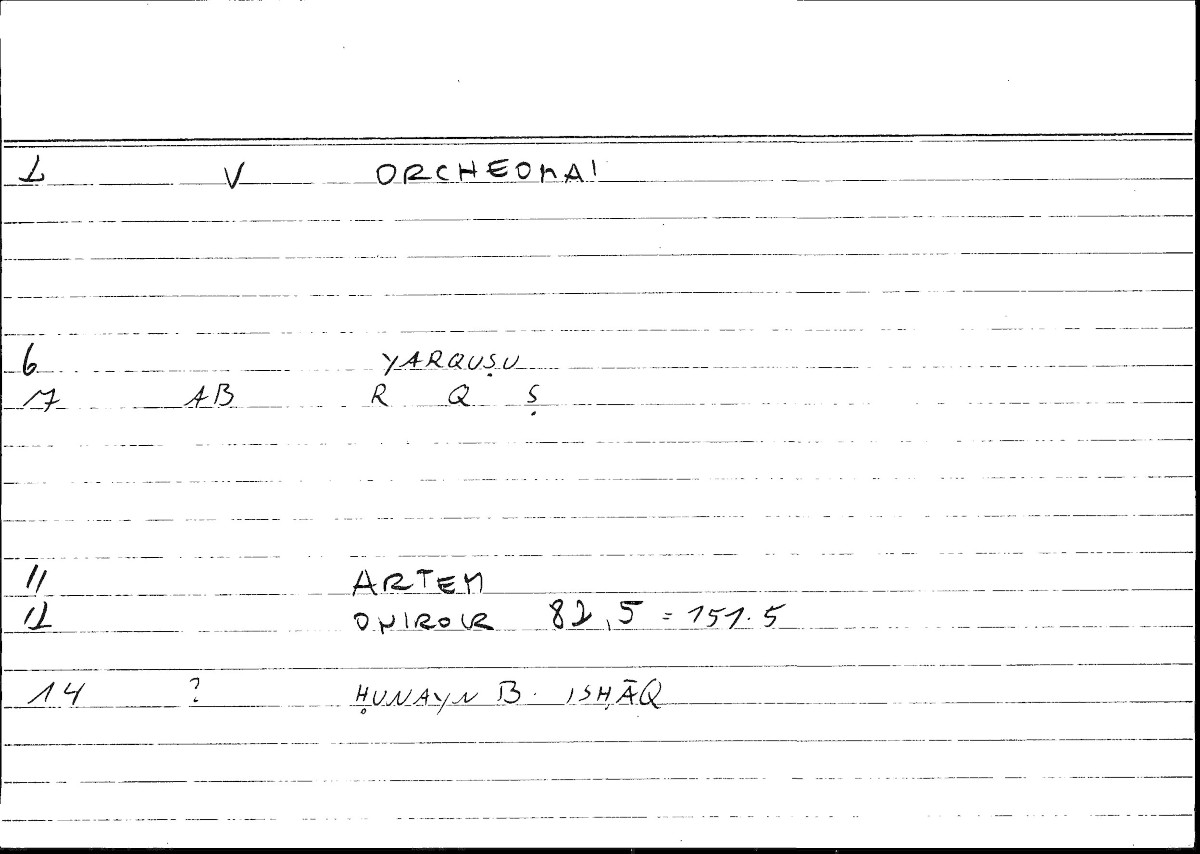 2 V ORCHEOMAI
6 YARQUṢU
7 AB R Q Ṣ
11 ARTEM
12 ONIROCR 82,5 = 151.5
14 ? ḤUNAYN B. ISḤĀQ